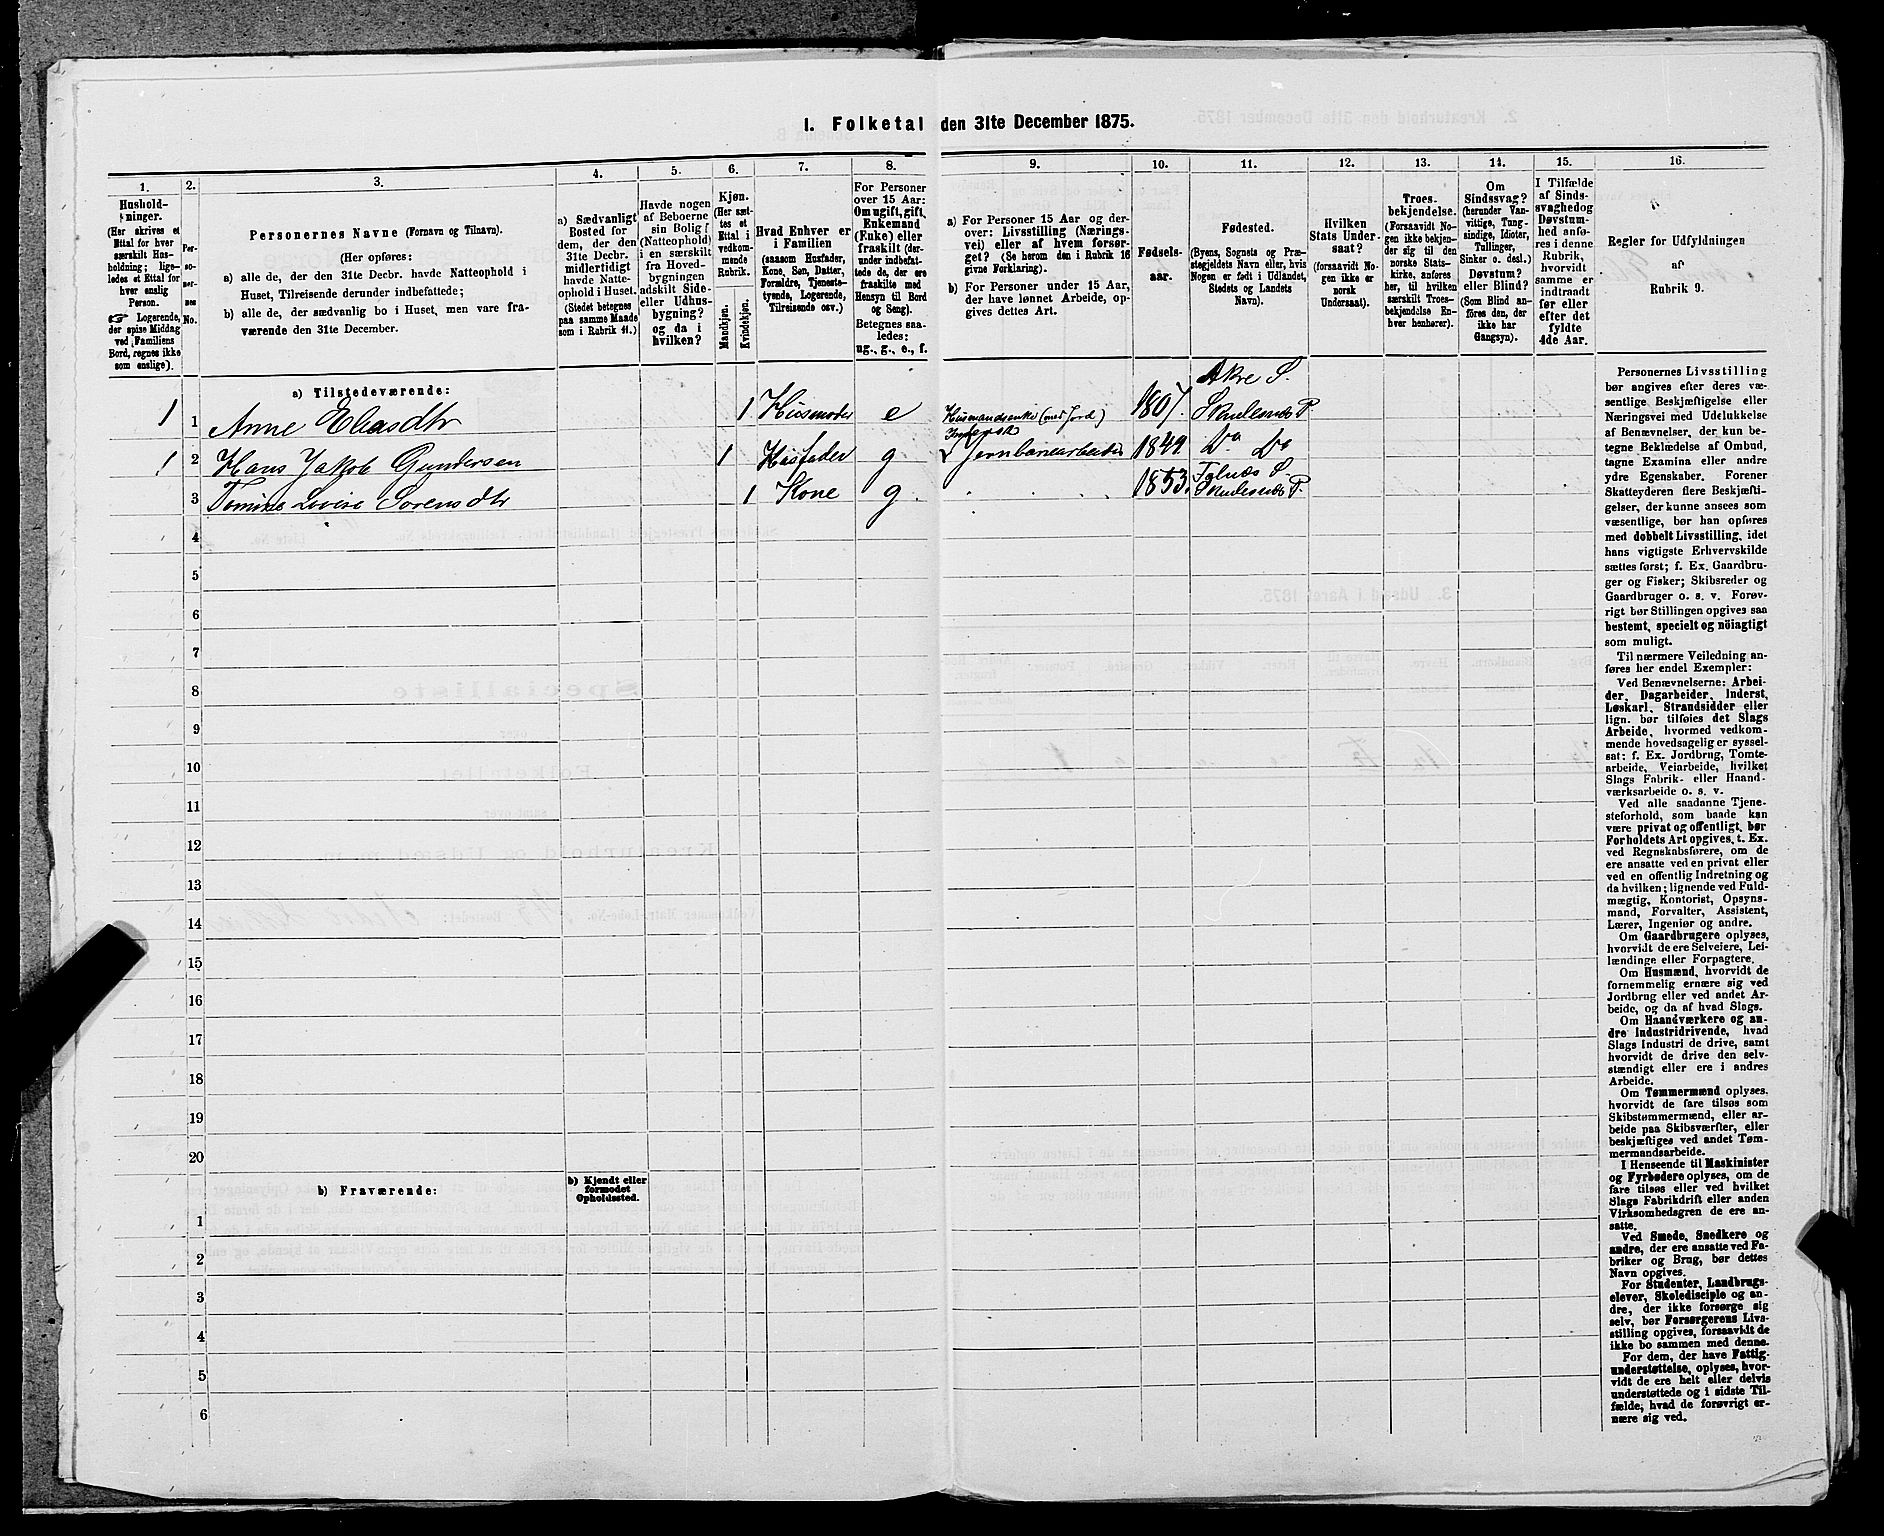 I. Folketal den 31te December 1875.
1.
Hushold-
ninger.
(Her skrives et
Ettal for hver
særskilt Hus-
holdning; lige-
ledes et Ettal for
hver enslig
Person.
☞ Logerende,
der spise Middag
ved Familiens
Bord, regnes ikke
som enslige).
2.
Per-
so-
ner-
nes
No.
3.
Personernes Navne (Fornavn og Tilnavn).
(Her opføres:
a) alle de, der den 31te Decbr. havde Natteophold i
Huset, Tilreisende derunder indbefattede;
b) alle de, der sædvanlig bo i Huset, men vare fra-
værende den 31te December.
4.
a) Sædvanligt
Bosted for
dem, der den
31te Decbr.
midlertidigt
havde Natte-
ophold i Huset.
(Stedet betegnes
paa samme Maade
som i Rubrik 11.)
5.
Havde nogen
af Beboerne
sin Bolig
(Natteophold)
i en særskilt
fra Hoved-
bygningen
adskilt Side-
eller Udhus-
bygning?
og da i
hvilken?
6.
Kjøn.
(Her sæt-
tes et
Ettal i
vedkom-
mende
Rubrik.
Mandkjøn.
Kvindekjøn.
7.
Hvad Enhver er
i Familien
(saasom Husfader,
Kone, Søn, Datter,
Forældre, Tjeneste-
tyende, Logerende,
Tilreisende osv.)
8.
For Personer
over 15 Aar:
Om ugift, gift,
Enkemand
(Enke) eller
fraskilt (der-
under indbefat-
tede de, der ere
fraskilte med
Hensyn til Bord
og Seng).
Betegnes saa-
ledes:
ug., g., e., f.
9.
a) For Personer 15 Aar og der-
over: Livsstilling (Nærings-
vei) eller af hvem forsør-
get? (Se herom den i Rubrik 16
givne Forklaring).
b) For Personer under 15 Aar,
der have lønnet Arbeide, op-
gives dettes Art.
10.
Fødsels-
aar.
11.
Fødested.
(Byens, Sognets og Præ-
stegjeldets Navn eller, hvis
Nogen er født i Udlandet,
Stedets og Landets
Navn).
12.
Hvilken
Stats Under-
saat?
(forsaavidt No-
gen ikke er
norsk
Undersaat).
13.
Troes-
bekjendelse.
(Forsaavidt No-
gen ikke bekjen-
der sig til den
norske Stats-
kirke, anføres
her, til hvilken
særskilt Troes-
bekjendelse En-
hver henhører).
14.
Om
Sindssvag?
(herunder Van-
vittige, Tung-
sindige, Idioter,
Tullinger,
Sinker o. desl.)
Døvstum?
eller Blind?
(Som Blind an-
føres den, der
ikke har
Gangsyn).
15.
I Tilfælde
af Sinds-
svaghed og
Døvstum-
hed anfø-
res i denne
Rubrik,
hvorvidt
samme er
indtraadt
før eller
efter det
fyldte
4de Aar.
16.
Regler for Udfyldningen
af
Rubrik 9.
a) Tilstedeværende:
Akre S.
1 1 Anne Eliasdtr 1 Husmoder e Husmandsenke (med Jord) 1807. Skudesnæs P.
1 2 Hans Jakob Gundersen 1 Husfader g Jernbanearbeider 1849 Do Do
Falnæs S.
3 Tomine Lovise Sørensdtr 1 Kone g 1853. Skudesnæs P.
4
5
6
7
8
9
10
11
12
13
14
15
16
17
18
19
20
b) Fraværende:
b) Kjendt eller
formodet
Opholdssted.
1
2
3
4
5
6
Personernes Livsstilling
bør angives efter deres væ-
sentlige Beskjæftigelse eller
Næringsvei med Udelukkelse
af Benævnelser, der kun be-
tegne Beklædelse af Ombud,
tagne Examina eller andre
ydre Egenskaber. Forener
Skatteyderen flere Beskjæfti-
gelser, der kunne ansees som
væsentlige, bør han opføres
med dobbelt Livsstilling, idet
hans vigtigste Erhvervskilde
sættes først; f. Ex. Gaardbru-
ger og Fisker; Skibsreder og
Gaardbruger o. s. v. Forøv-
rigt bør Stillingen opgives saa
bestemt, specielt og nöiagtigt
som muligt.
Til nærmere Veiledning an-
føres her endel Exempler:
Ved Benævnelserne: Arbei-
der, Dagarbeider, Inderst,
Løskarl, Strandsidder eller
lign. bør tilføies det Slags
Arbeide, hvormed vedkom-
mende hovedsagelig er syssel-
sat: f. Ex. Jordbrug, Tomte-
arbeide, Veiarbeide, hvilket
Slags Fabrik- eller Haand-
værksarbeide o. s. v.
Ved alle saadanne Tjene-
steforhold, som baade kan
være privat og offentligt, bør
Forholdets Art opgives, t. Ex.
ved Regnskabsførere, om de
ere ansatte ved en privat eller
ved en offentlig Indretning og
da hvilken; lignende ved Fuld-
mægtig, Kontorist, Opsyns-
mand, Forvalter, Assistent,
Lærer, Ingeniør og andre.
Om Gaardbrugere oplyses,
hvorvidt de ere Selveiere, Lei-
lændinge eller Forpagtere.
Om Husmænd, hvorvidt de
fornemmelig ernære sig ved
Jordbrug eller ved andet Ar-
beide, og da af hvad Slags.
Om Haandværkere og an-
dre Industridrivende, hvad
Slags Industri de drive, samt
hvorvidt de drive den selv-
stændigt eller ere i andres
Arbeide.
Om Tømmermænd oplyses,
hvorvidt de fare tilsøs som
Skibstømmermænd, eller ar-
beide paa Skibsværfter, eller
beskjæftiges ved andet Tøm-
mermandsarbeide.
I Henseende til Maskinister
og Fyrbødere oplyses, om de
fare tilsøs eller ved hvilket
Slags Fabrikdrift eller anden
Virksomhedsgren de ere an-
satte.
Ved Smede, Snedkere og
andre, der ere ansatte ved Fa-
briker og Brug, bør dettes
Navn opgives.
For Studenter, Landbrugs-
elever, Skoledisciple og an-
dre, der ikke forsørge sig
selv, bør Forsørgerens Livs-
stilling opgives, forsaavidt de
ikke bo sammen med denne.
For dem, der have Fattig-
understøttelse, oplyses, hvor-
vidt de ere helt eller delvis
understøttede og i sidste Til-
fælde, hvad de forøvrigt er-
nære sig ved.